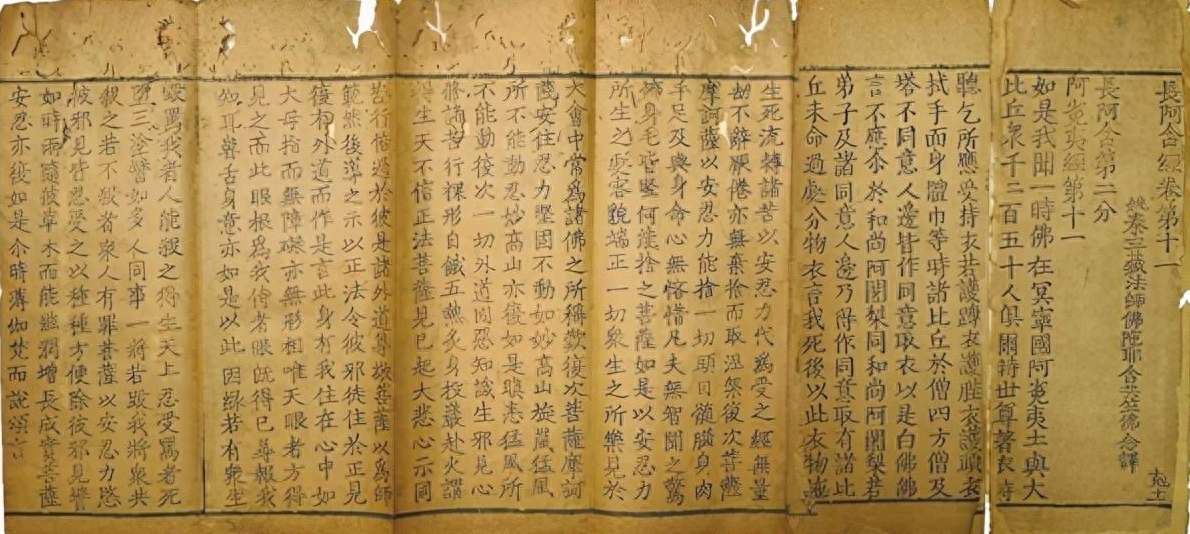 長阿含經卷第十一
姚秦三藏法師佛陀耶舍共竺佛念譯
長阿含第二分
阿㝹夷經第十一
如是我聞一時佛在冥寧國阿㝹夷土與大
比丘眾千二百五十人俱爾時世尊著衣持
聽乞所應受持衣若護蹲衣護髀衣護頭衣
拭手面身體巾等時諸比丘於僧四方僧及
塔不同意人邊皆作同意取衣以是白佛佛
言不應尒於和尚阿闍梨同和尚阿闍梨若
弟子及諸同意人邊乃得作同意取有諸比
丘未命過處分物衣言我死後以此衣物施
生死流轉諸苦以安忍力代為受之經無量
劫不辭疲倦亦無棄捨而取涅槃後次菩薩
摩訶薩以安忍力能捨一切頭目髓腦身肉
手足及與身命心無悋惜凡夫無智聞之驚
怖身毛皆竪何能捨之菩薩如是以安忍力
所生之處容貌端正一切衆生之所樂見於
大會中常為諸佛之所稱歎復次菩薩摩訶
薩安住忍力堅固不動如妙高山旋嵐猛風
所不能動忍妙高山亦復如是瞋恚猛風所
不能動復次一切外道惡知識生邪見心
修諸苦行裸形自餓五熱炙身投巖赴火謂
得生天不信正法菩薩見已起大悲心示同
苦行倍過於彼是諸外道尊敬菩薩以為師
範然後導之示以正法令彼邪徒住於正見
復相外道而作是言此身有我住在心中如
大母指而無障礙亦無形相唯天眼者方得
見之而此眼根為我侍者眼既得已尋報我
知耳鼻舌身意亦如是以此因緣若有衆生
毀罵我者人能殺之得生天上忍受罵者死
墮三塗譬如多人同事一將若毀我將衆共
殺之若不殺者衆人有罪菩薩以安忍力愍
彼邪見皆忍受之以種種方便除彼邪見譬
如時雨隨彼草木而能滋潤增長成實菩薩
安忍亦復如是尒時薄伽梵而說頌言